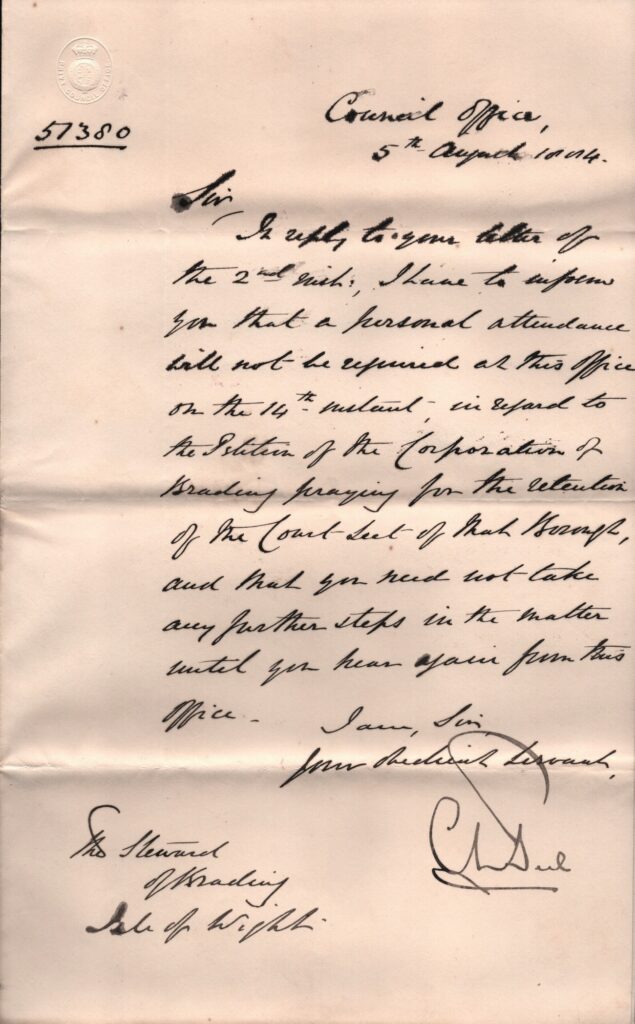 PRIVY COUNCIL OFFICE
51380
Council Office,
5th August 1884.
Sir
In reply to your letter of
the 2nd inst:, I have to inform
you that a personal attendance
will not be required at this Office
on the 14th instant, in regard to
the Petition of the Corporation of
Brading praying for the retention
of the Court Leet of that Borough,
and that you need not take
any further steps in the matter
until you hear again from this
Office.
I am, Sir,
Your obedient Servant,
The Steward
of Brading
Isle of Wight.